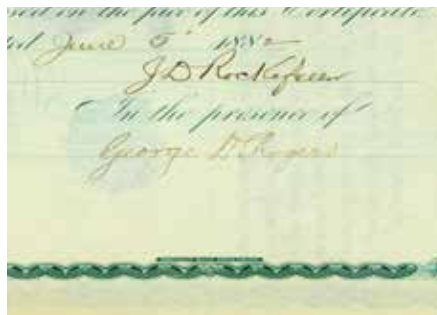 on the face of this Certificate
June 5th 1882
J D Rockefeller
In the presence of
George D Rogers